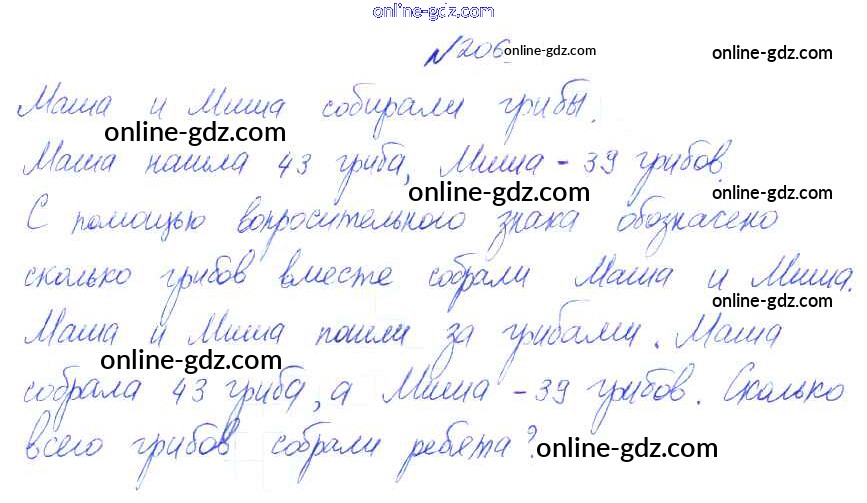 online-gdz.com
№206 online-gdz.com online-gdz.com
Маша и Миша собирали грибы.
online-gdz.com
Маша нашла 43 гриба, Миша - 39 грибов.
online-gdz.com online-gdz.com
С помощью вопросительного знака обозначено
сколько грибов вместе собрали Маша и Миша.
online-gdz.com
Маша и Миша пошли за грибами. Маша
online-gdz.com
собрала 43 гриба, а Миша - 39 грибов. Сколько
online-gdz.com
всего грибов собрали ребята?
online-gdz.com
online-gdz.com